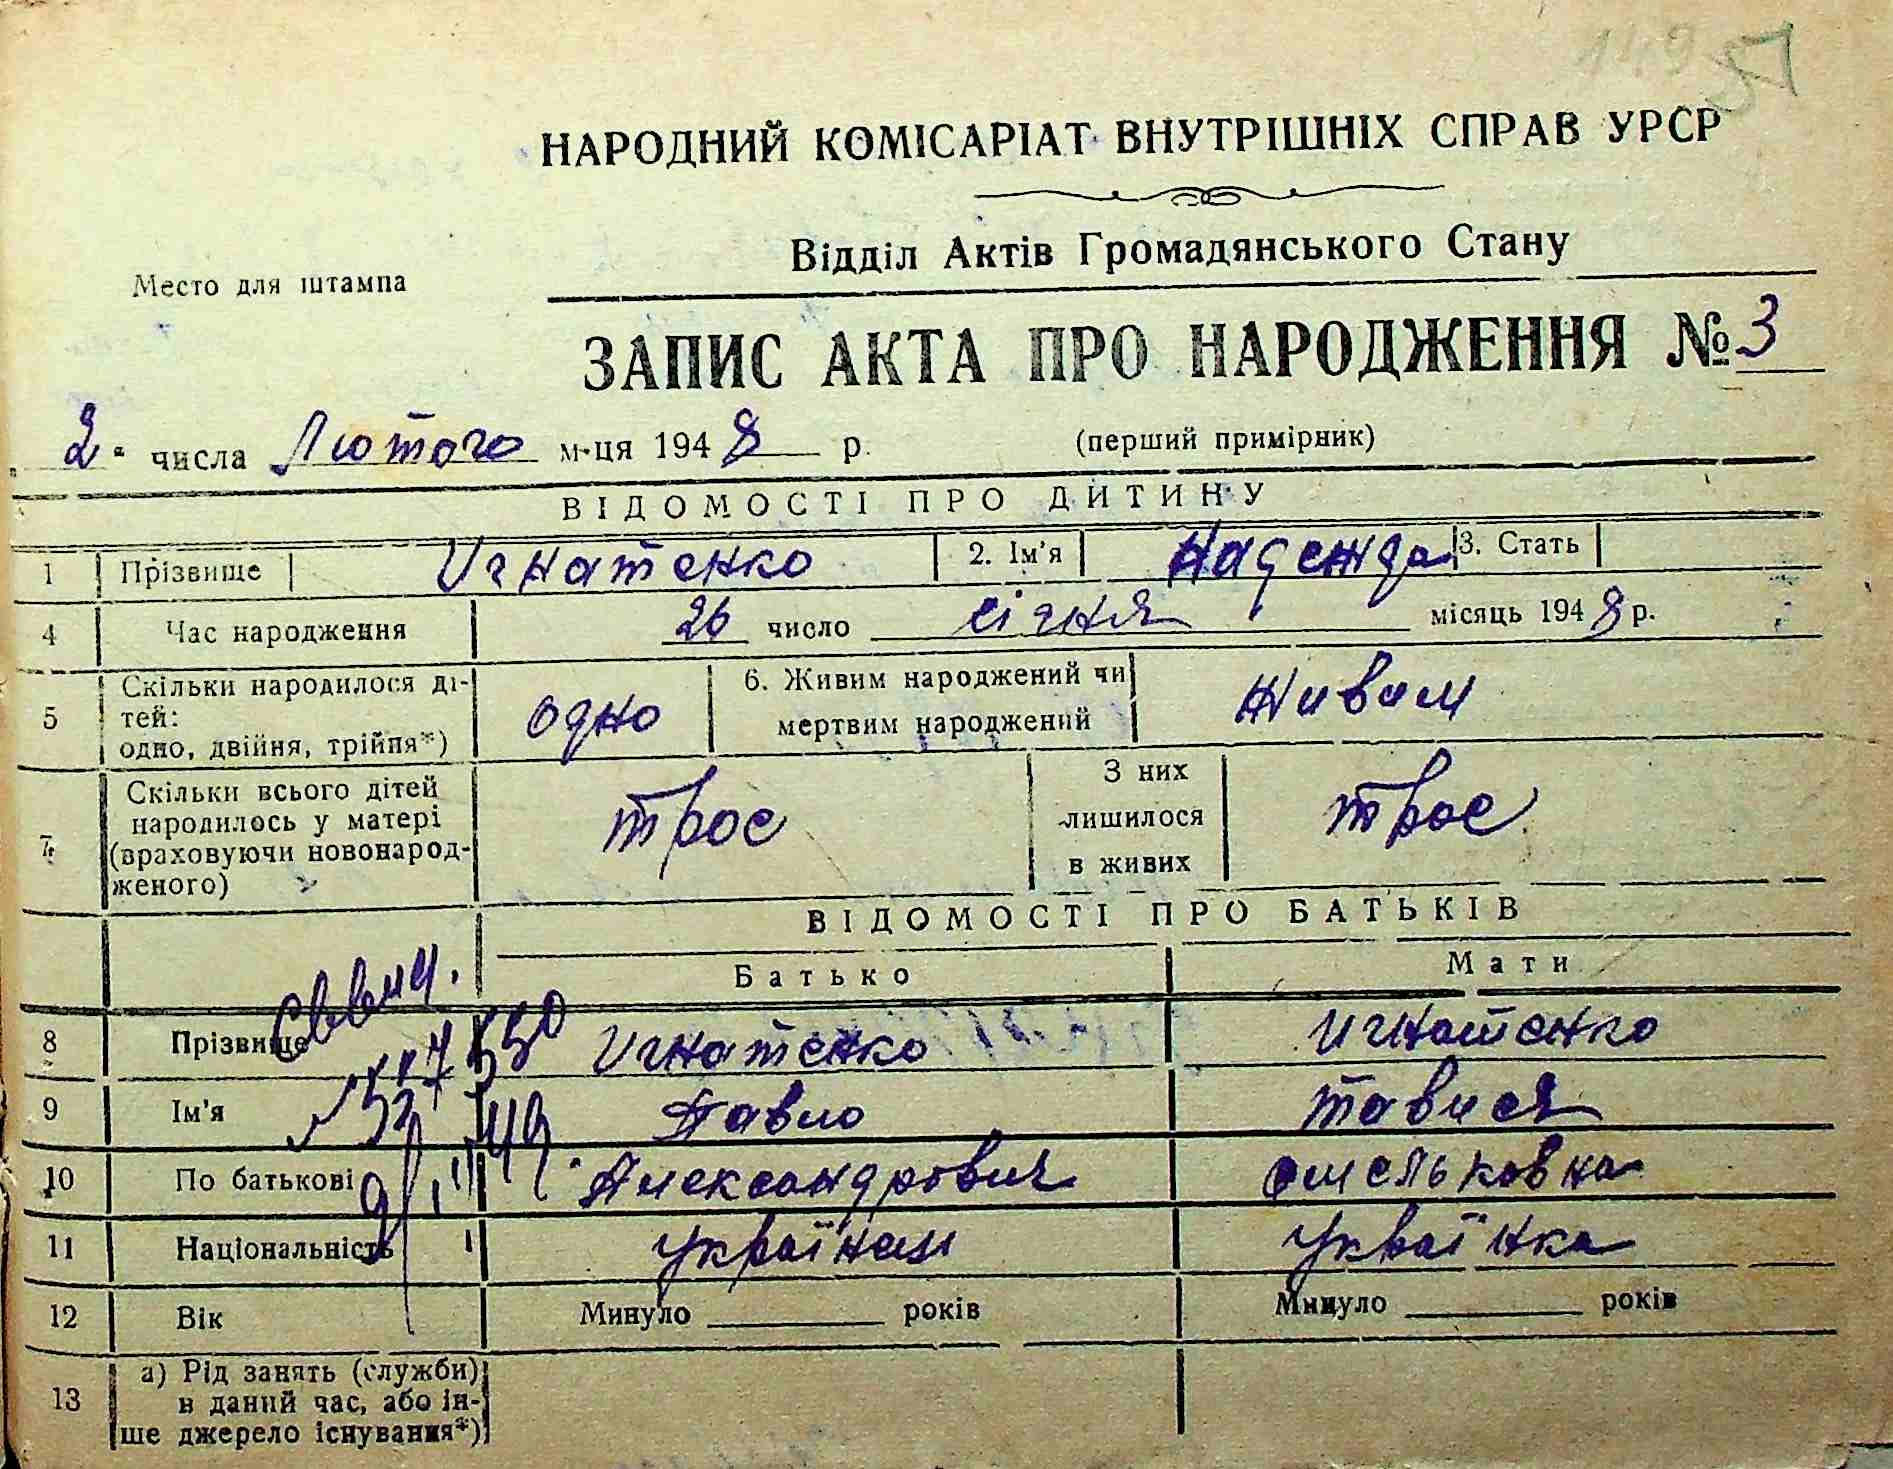 149 51
НАРОДНИЙ КОМІСАРІАТ ВНУТРІШНІХ СПРАВ УРСР
Відділ Актів Громадянського Стану
Место для штампа
ЗАПИС АКТА ПРО НАРОДЖЕННЯ № 3
„ 2 " числа Лютого м-ця 1948 р. (перший примірник)
ВІДОМОСТІ ПРО ДИТИНУ
1 Прізвище Игнатенко 2. Ім'я Надежда 3. Стать
4 Час народження 26 число січня місяць 1948 р.
5 Скільки народилося ді-
тей:
одно, двійня, трійня*) одно 6. Живим народжений чи
мертвим народжений Живим
7 Скільки всього дітей
народилось у матері
(враховуючи новонарод-
женого) троє З них
лишилося
в живих троє
ВІДОМОСТІ ПРО БАТЬКІВ
Батько Мати
8 Прізвище Игнатенко Игнатенко
9 Ім'я Павло
10 По батькові Александрович Омельковна
11 Національність українец українка
12 Вік Минуло років Минуло років
13 а) Рід занять (служби)
в даний час, або ін-
ше джерело існування*)